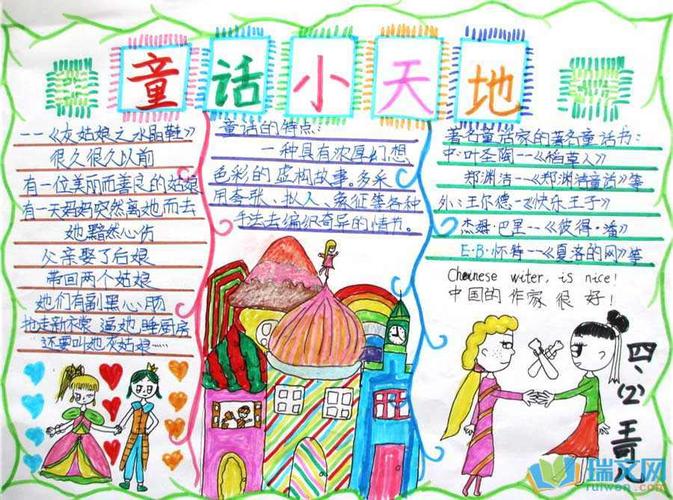 童话小天地
--《灰姑娘之水晶鞋》
很久很久以前
有一位美丽而善良的姑娘
有一天妈妈突然离她而去
她黯然心伤
父亲娶了后娘
带回两个姑娘
她们有副黑心肠
抢走新衣裳 逼她睡厨房
还要叫她灰姑娘……
童话的特点：
一种具有浓厚幻想
色彩的虚构故事。多采
用夸张、拟人、象征等各种
手法去编织奇异的情节。
著名童话家的著名童话书：
中：叶圣陶--《稻草人》
郑渊洁--《郑渊洁童话》等
外：王尔德-《快乐王子》
杰姆·巴里--《彼得·潘》
E·B·怀特--《夏洛的网》等
Cheinese witer, is nice!
中国的作家很好！
四、(2) 王可儿
瑞文网
ruiwen.com